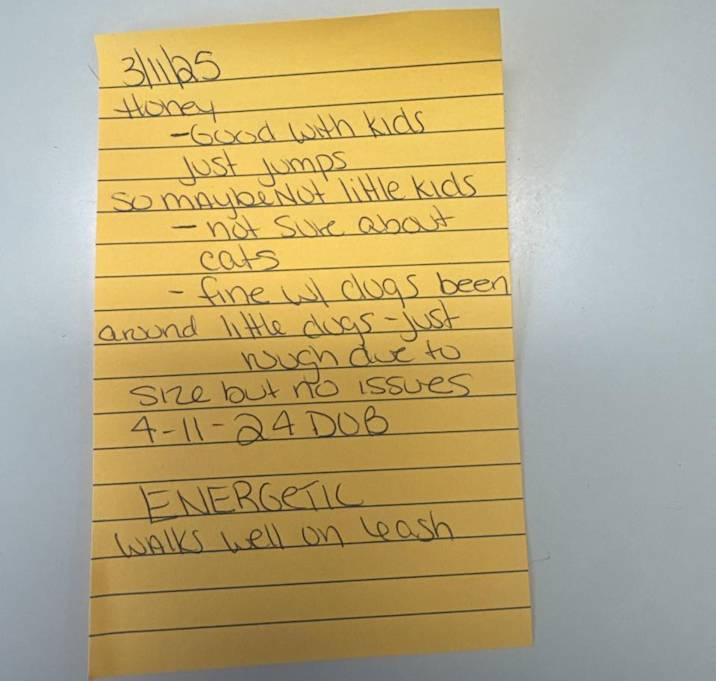 3/11/25
Honey
-Good with kids
just jumps
so maybe Not little kids
- not sure about
cats
- fine w/ dogs been
around little dogs - just
rough due to
size but no issues
4-11-24 DOB
ENERGETIC
WALKS well on leash